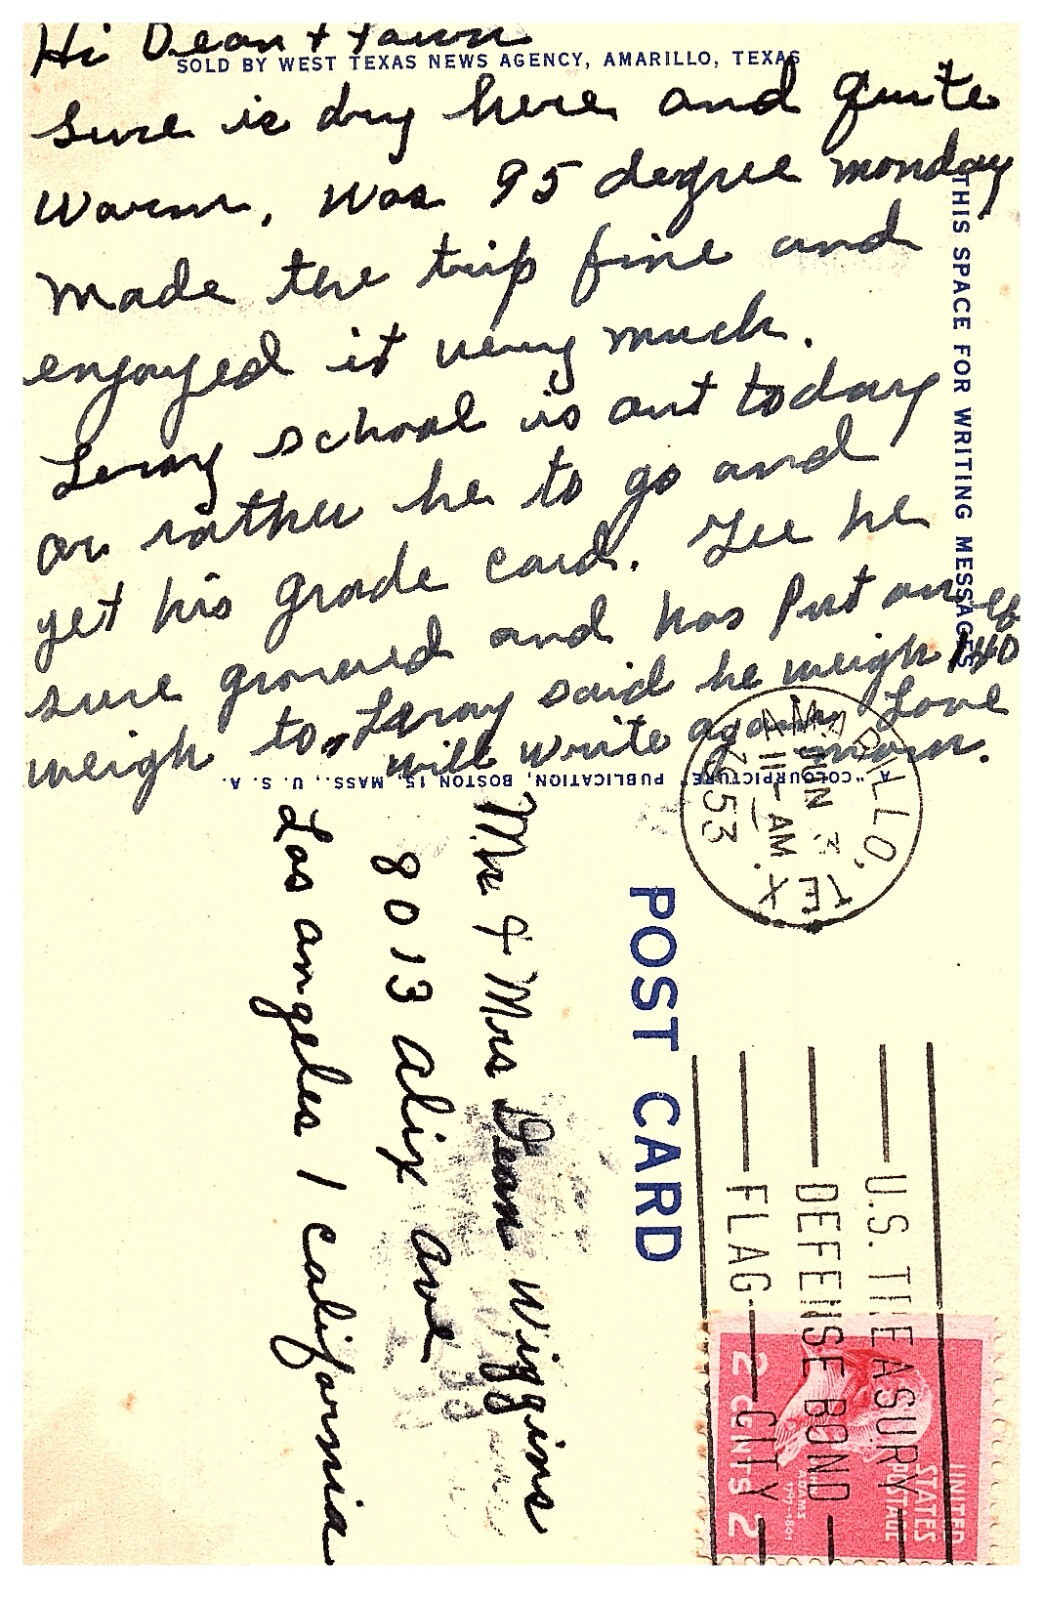 Hi Dean + Fawn
SOLD BY WEST TEXAS NEWS AGENCY, AMARILLO, TEXAS
sure is dry here and quite
Warm, was 95 degree monday
Made the trip fine and
enjoyed it very much.
Leroy school is out today
or rather he to go and
get his grade card. Gee he
sure growed and has put on
weigh to, Leroy said he weigh 140 lb
will write again Love
mom.
THIS SPACE FOR WRITING MESSAGES
A "COLOURPICTURE" PUBLICATION, BOSTON 15, MASS., U. S. A.
POST CARD
Mr & Mrs Dean Wiggins
8013 Alix Ave
Los angeles 1 California
AMARILLO, TEX.
JUN 3
11 - AM
1953
U.S. TREASURY
DEFENSE BOND
FLAG CITY
UNITED
STATES
POSTAGE
JOHN
ADAMS
1797-1801
2 CENTS 2